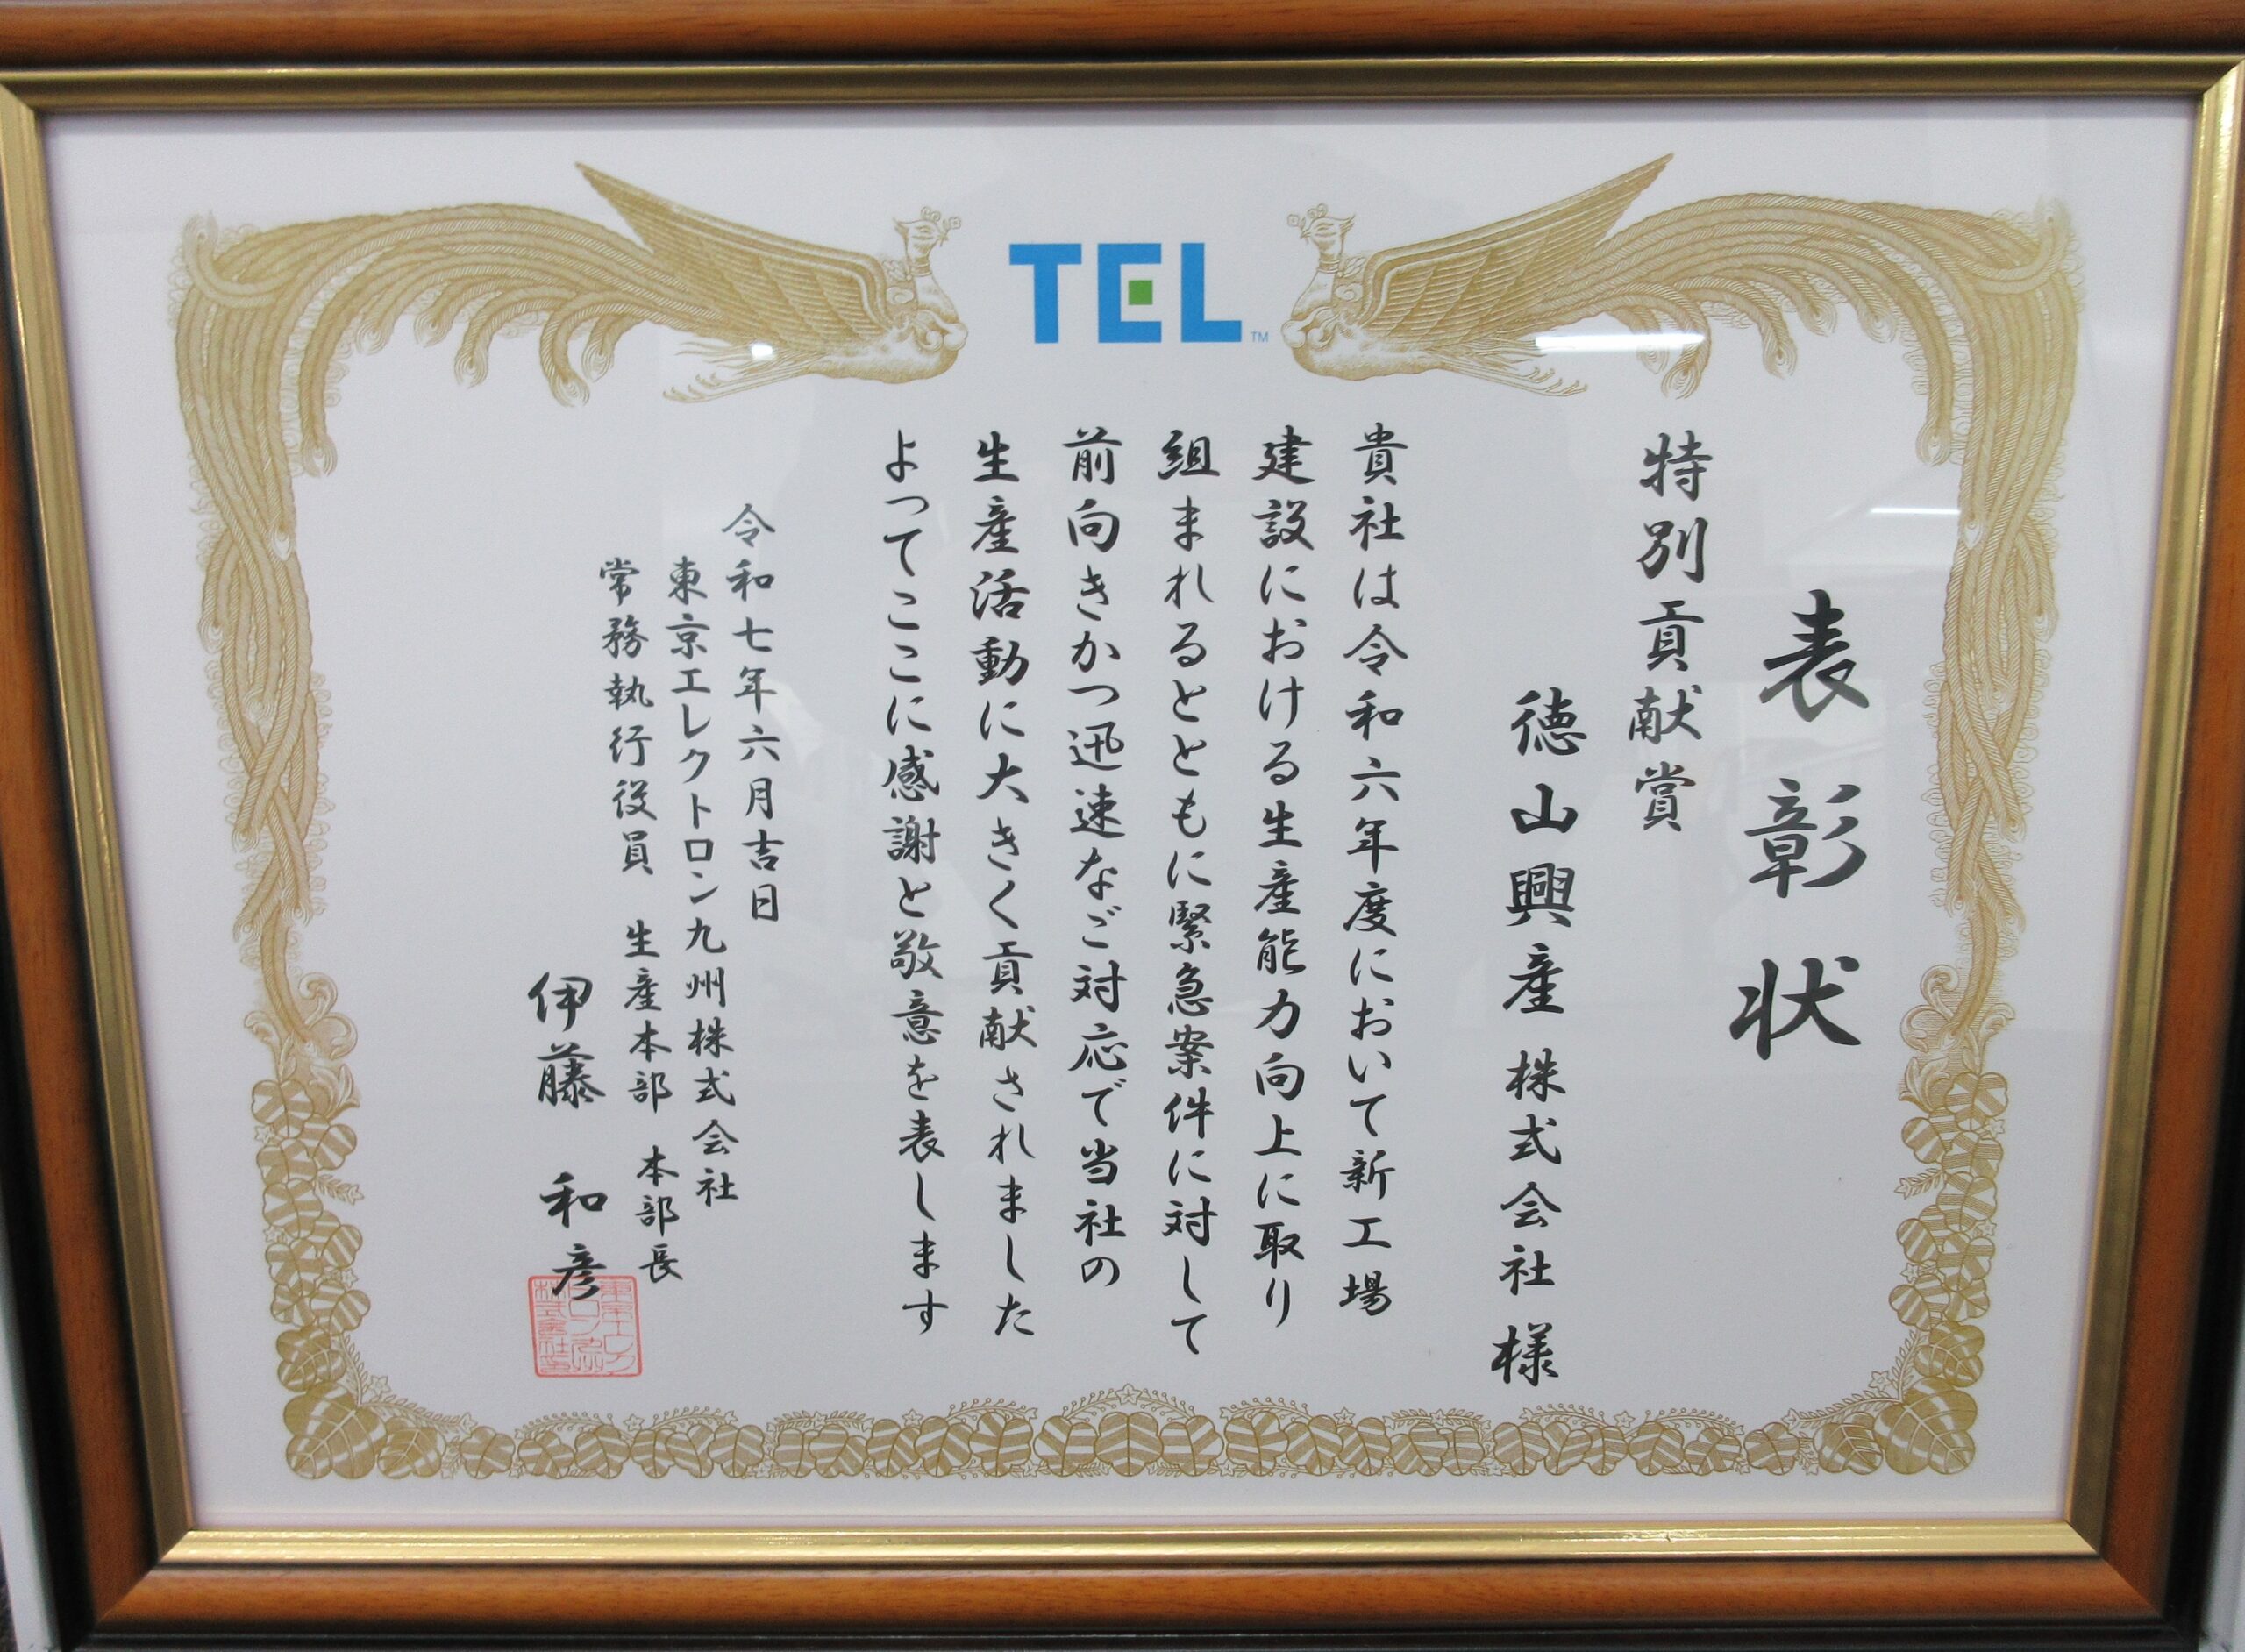 TEL™
表彰状
特別貢献賞
徳山興産株式会社様
貴社は令和六年度において新工場
建設における生産能力向上に取り
組まれるとともに緊急案件に対して
前向きかつ迅速なご対応で当社の
生産活動に大きく貢献されました
よってここに感謝と敬意を表します
令和七年六月吉日
東京エレクトロン九州株式会社
常務執行役員 生産本部 本部長
伊藤 和彦